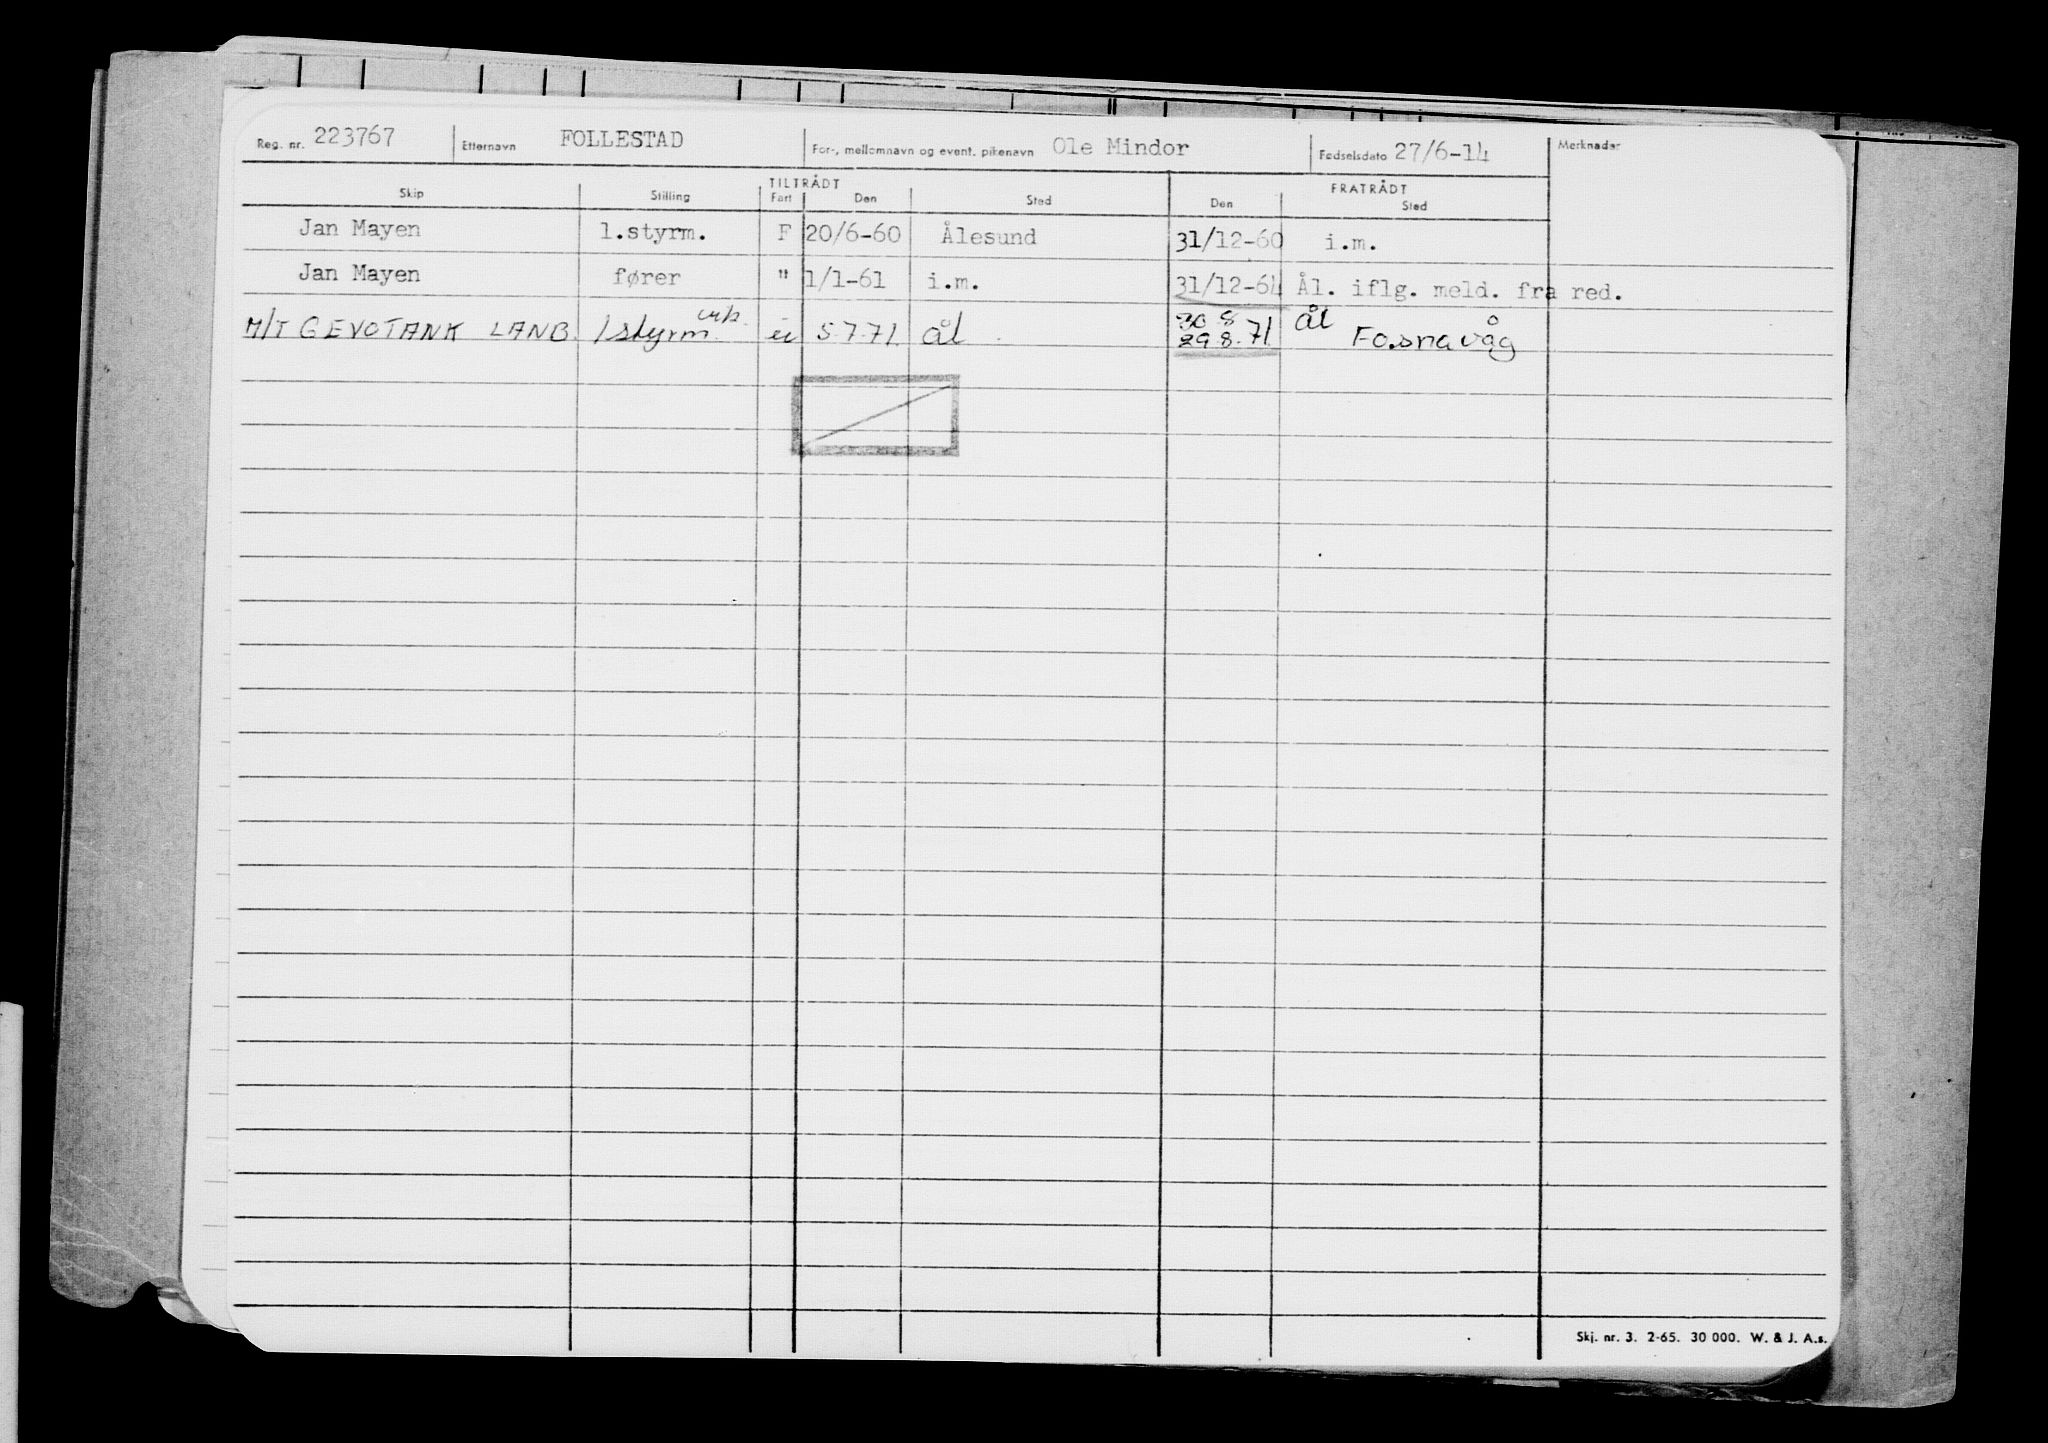 Reg. nr. 223767 Etternavn FOLLESTAD For-, mellomnavn og event. pikenavn Ole Mindor Fødselsdato 27/6-14 Merknader
TILTRÅDT FRATRÅDT
Skip Stilling Fart Den Sted Den Sted
Jan Mayen 1.styrm. F 20/6-60 Ålesund 31/12-60 i.m.
Jan Mayen fører " 1/1-61 i.m. 31/12-64 Ål. iflg. meld. fra red.
30 8 Ål
M/T GEVOTANK LANB. 1styrm. 5.7.71 Ål 29.8.71 Fosnavåg
Skj. nr. 3. 2-65. 30 000. W. & J. A.s.